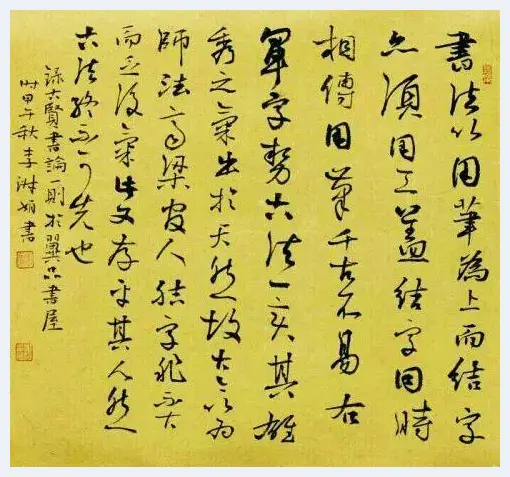 書法以用筆為上而結字
亦須用工蓋結字因時
相傳用筆千古不易右
軍字勢古法一變其雄
秀之氣出於天然故古今以為
師法齊梁間人結字非不古
而乏俊氣此又存乎其人然
古法終不可失也
錄古賢書論一則於翼書屋
時甲午秋李淋書